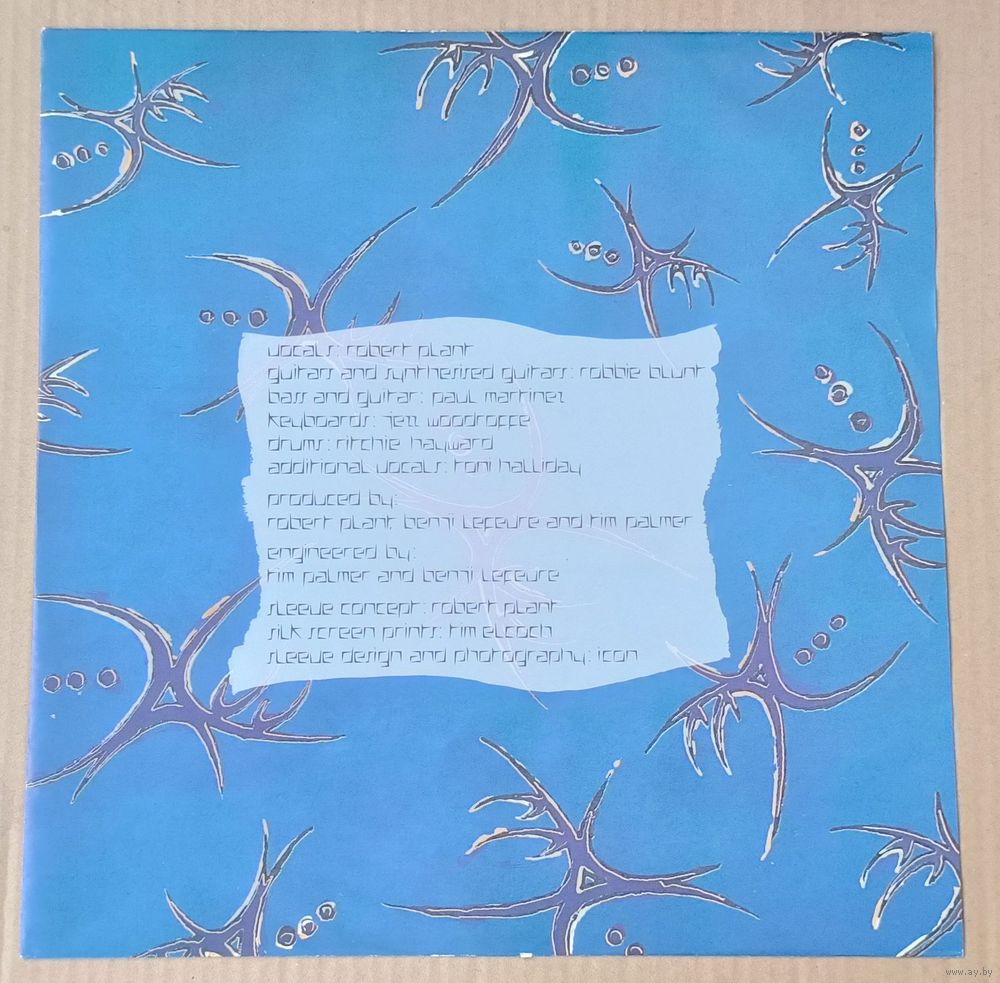 vocals: robert plant
guitars and synthesised guitars: robbie blunt
bass and guitar: paul martinez
keyboards: jezz woodroffe
drums: ritchie hayward
additional vocals: toni halliday
produced by:
robert plant benji lefevre and tim palmer
engineered by:
tim palmer and benji lefevre
sleeve concept: robert plant
silk screen prints: tim elcoch
sleeve design and photography: icon
www.ay.by